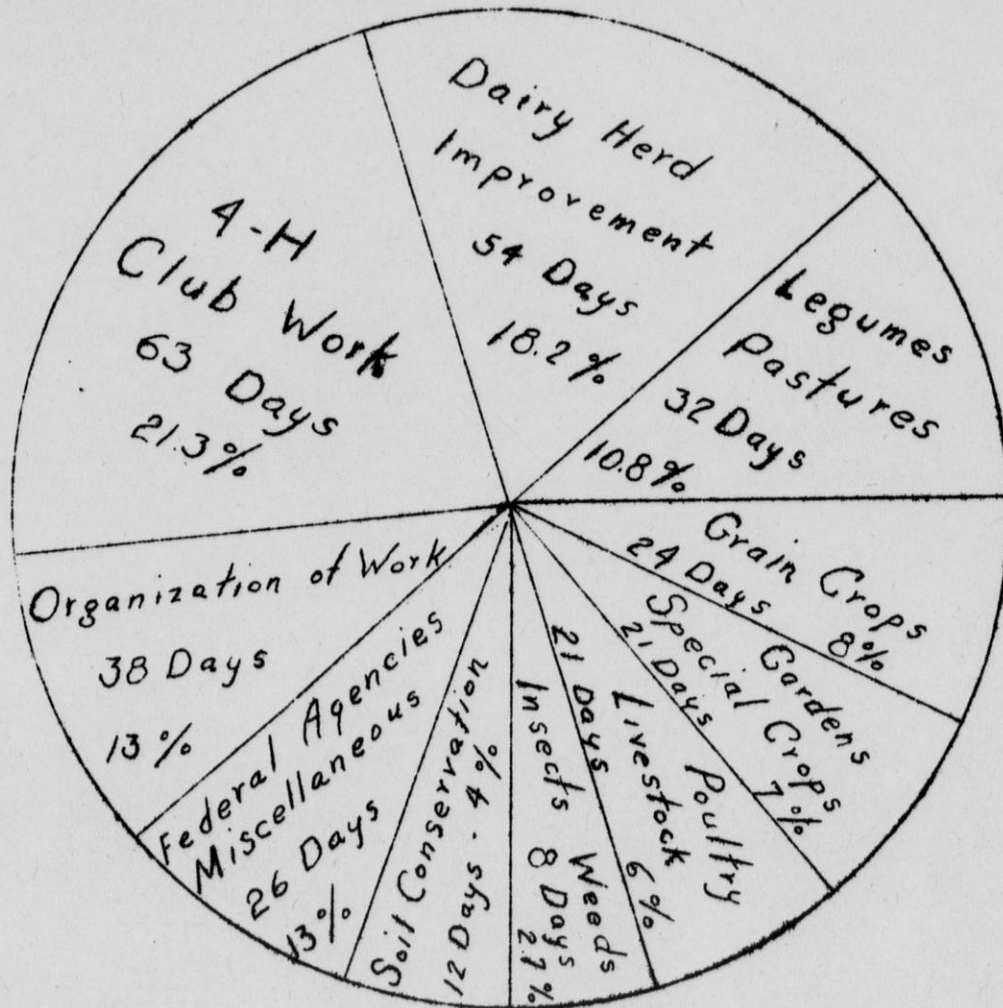 Dairy Herd
Improvement
54 Days
18.2%
Legumes
Pastures
32 Days
10.8%
Grain Crops
24 Days
8%
Gardens
Special Crops
21 Days
7%
Poultry
Livestock
21 Days
6%
Weeds
Insects 8 Days
2.7%
Soil Conservation
12 Days - 4%
Federal Agencies
Miscellaneous
26 Days
13%
Organization of Work
38 Days
13%
4-H
Club Work
63 Days
21.3%